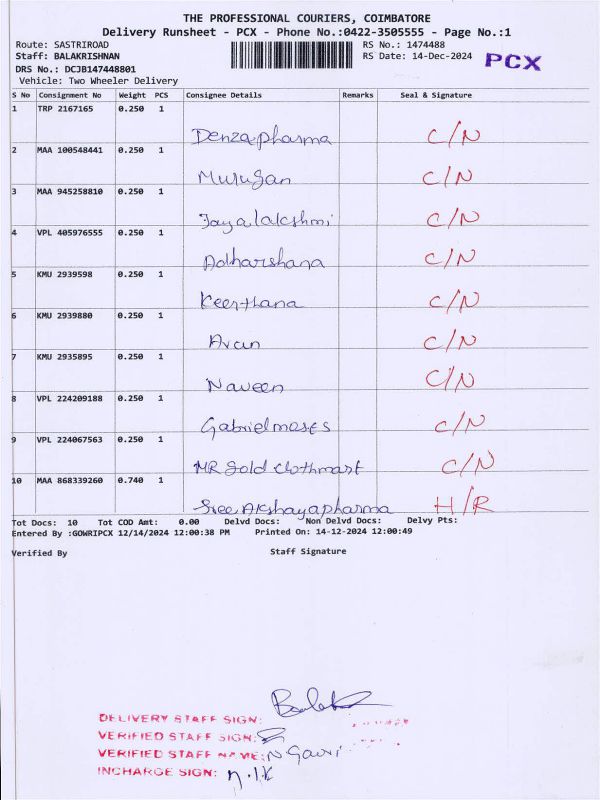 THE PROFESSIONAL COURIERS, COIMBATORE
Delivery Runsheet - PCX - Phone No.:0422-3505555 - Page No.:1
Route: SASTRIROAD RS No.: 1474488
Staff: BALAKRISHNAN RS Date: 14-Dec-2024 PCX
DRS No.: DCJB147448801
Vehicle: Two Wheeler Delivery
S No Consignment No Weight PCS Consignee Details Remarks Seal & Signature
1 TRP 2167165 0.250 1
Denzapharma C/N
2 MAA 100548441 0.250 1
Murugan C/N
3 MAA 945258810 0.250 1
Jayalakshmi C/N
4 VPL 405976555 0.250 1
Adharshana C/N
5 KMU 2939598 0.250 1
Keerthana C/N
6 KMU 2939880 0.250 1
Arun C/N
7 KMU 2935895 0.250 1
Naveen C/N
8 VPL 224209188 0.250 1
Gabrielmoses C/N
9 VPL 224067563 0.250 1
MR Gold Clothmart C/N
10 MAA 868339260 0.740 1
Sree Akshayapharma H/R
Tot Docs: 10 Tot COD Amt: 0.00 Delvd Docs: Non Delvd Docs: Delvy Pts:
Entered By :GOWRIPCX 12/14/2024 12:00:38 PM Printed On: 14-12-2024 12:00:49
Verified By Staff Signature
DELIVERY STAFF SIGN:
VERIFIED STAFF SIGN:
VERIFIED STAFF NAME: N Gowri
INCHARGE SIGN: